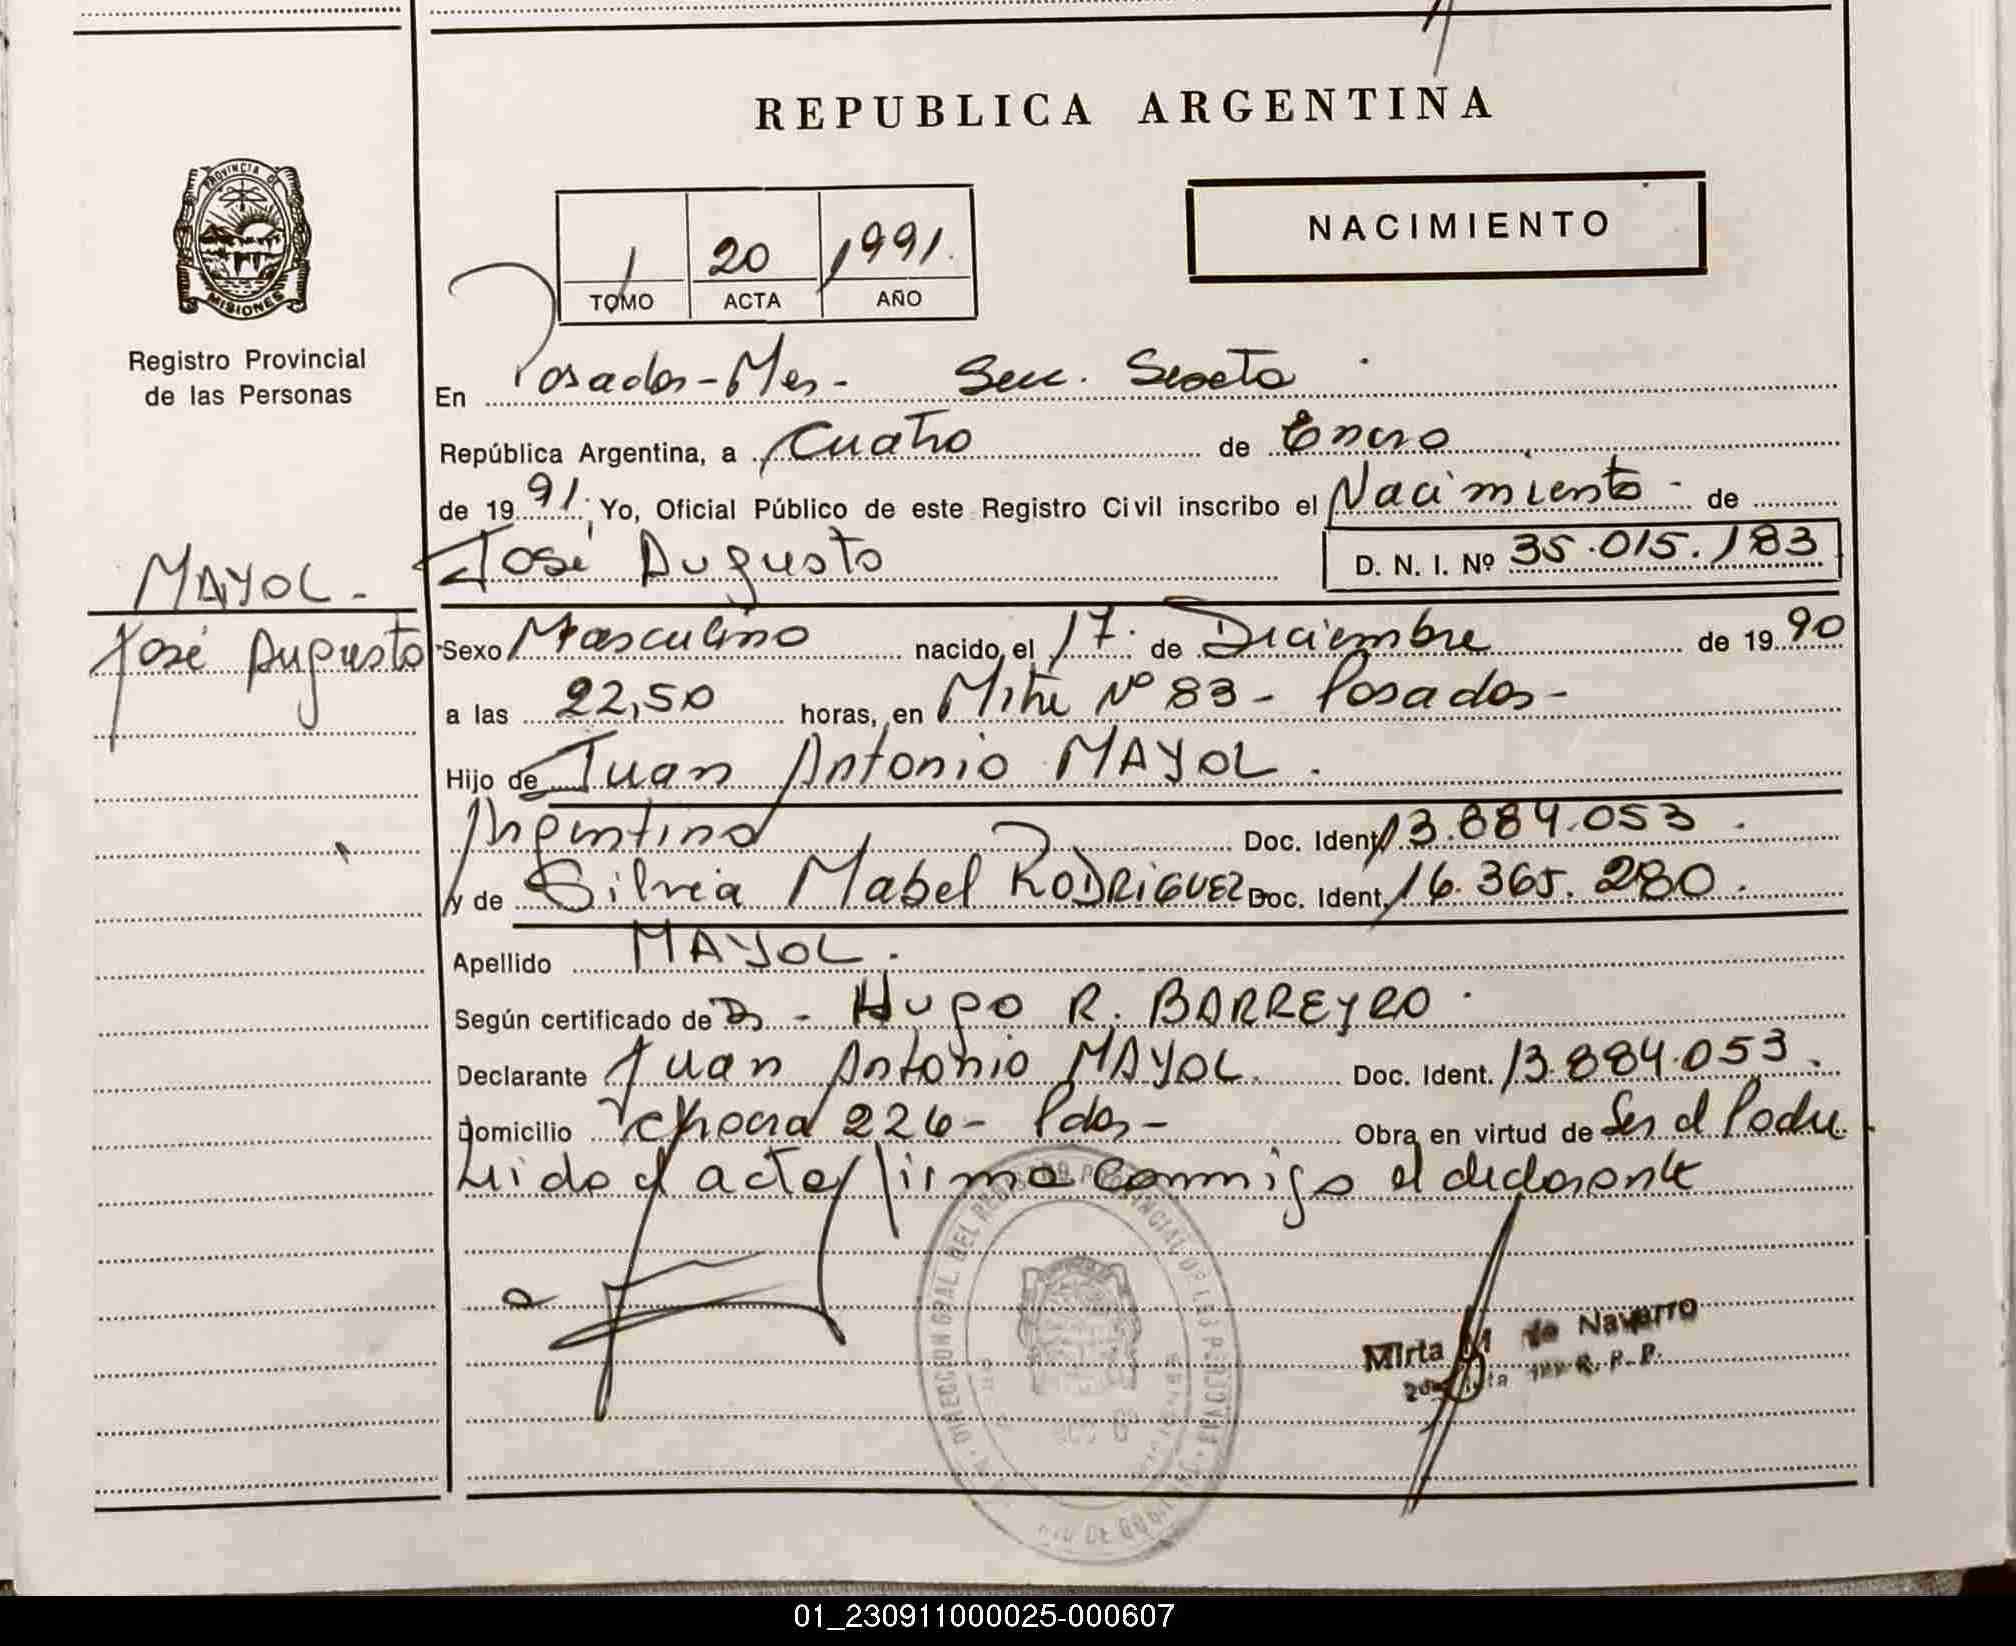 REPUBLICA ARGENTINA
PROVINCIA DE
MISIONES
Registro Provincial
de las Personas
NACIMIENTO
1 20 1991.
TOMO ACTA AÑO
En Posadas-Mes- Secc. Sexta
República Argentina, a Cuatro de Enero
de 1991. Yo, Oficial Público de este Registro Civil inscribo el Nacimiento - de
José Augusto D. N. I. Nº 35.015.183
MAYOL-
José Augusto
Sexo Masculino nacido el 17. de Diciembre de 1990
a las 22,50 horas, en Mitre Nº 83 - Posadas-
Hijo de Juan Antonio MAYOL.
Argentino Doc. Ident. 13.884.053.
y de Silvia Mabel RODRIGUEZ Doc. Ident. 16.365.280.
Apellido MAYOL.
Según certificado de Dr - Hugo R. BARREYRO.
Declarante Juan Antonio MAYOL. Doc. Ident. 13.884.053.
Domicilio 226- Pdas- Obra en virtud de Ser el Padre
Leido el acta firma conmigo el declarante
DIRECCION GRAL. DEL REGISTRO PROVINCIAL DE LAS PERSONAS
Mirta de Navarro
R.P.P.
01_230911000025-000607